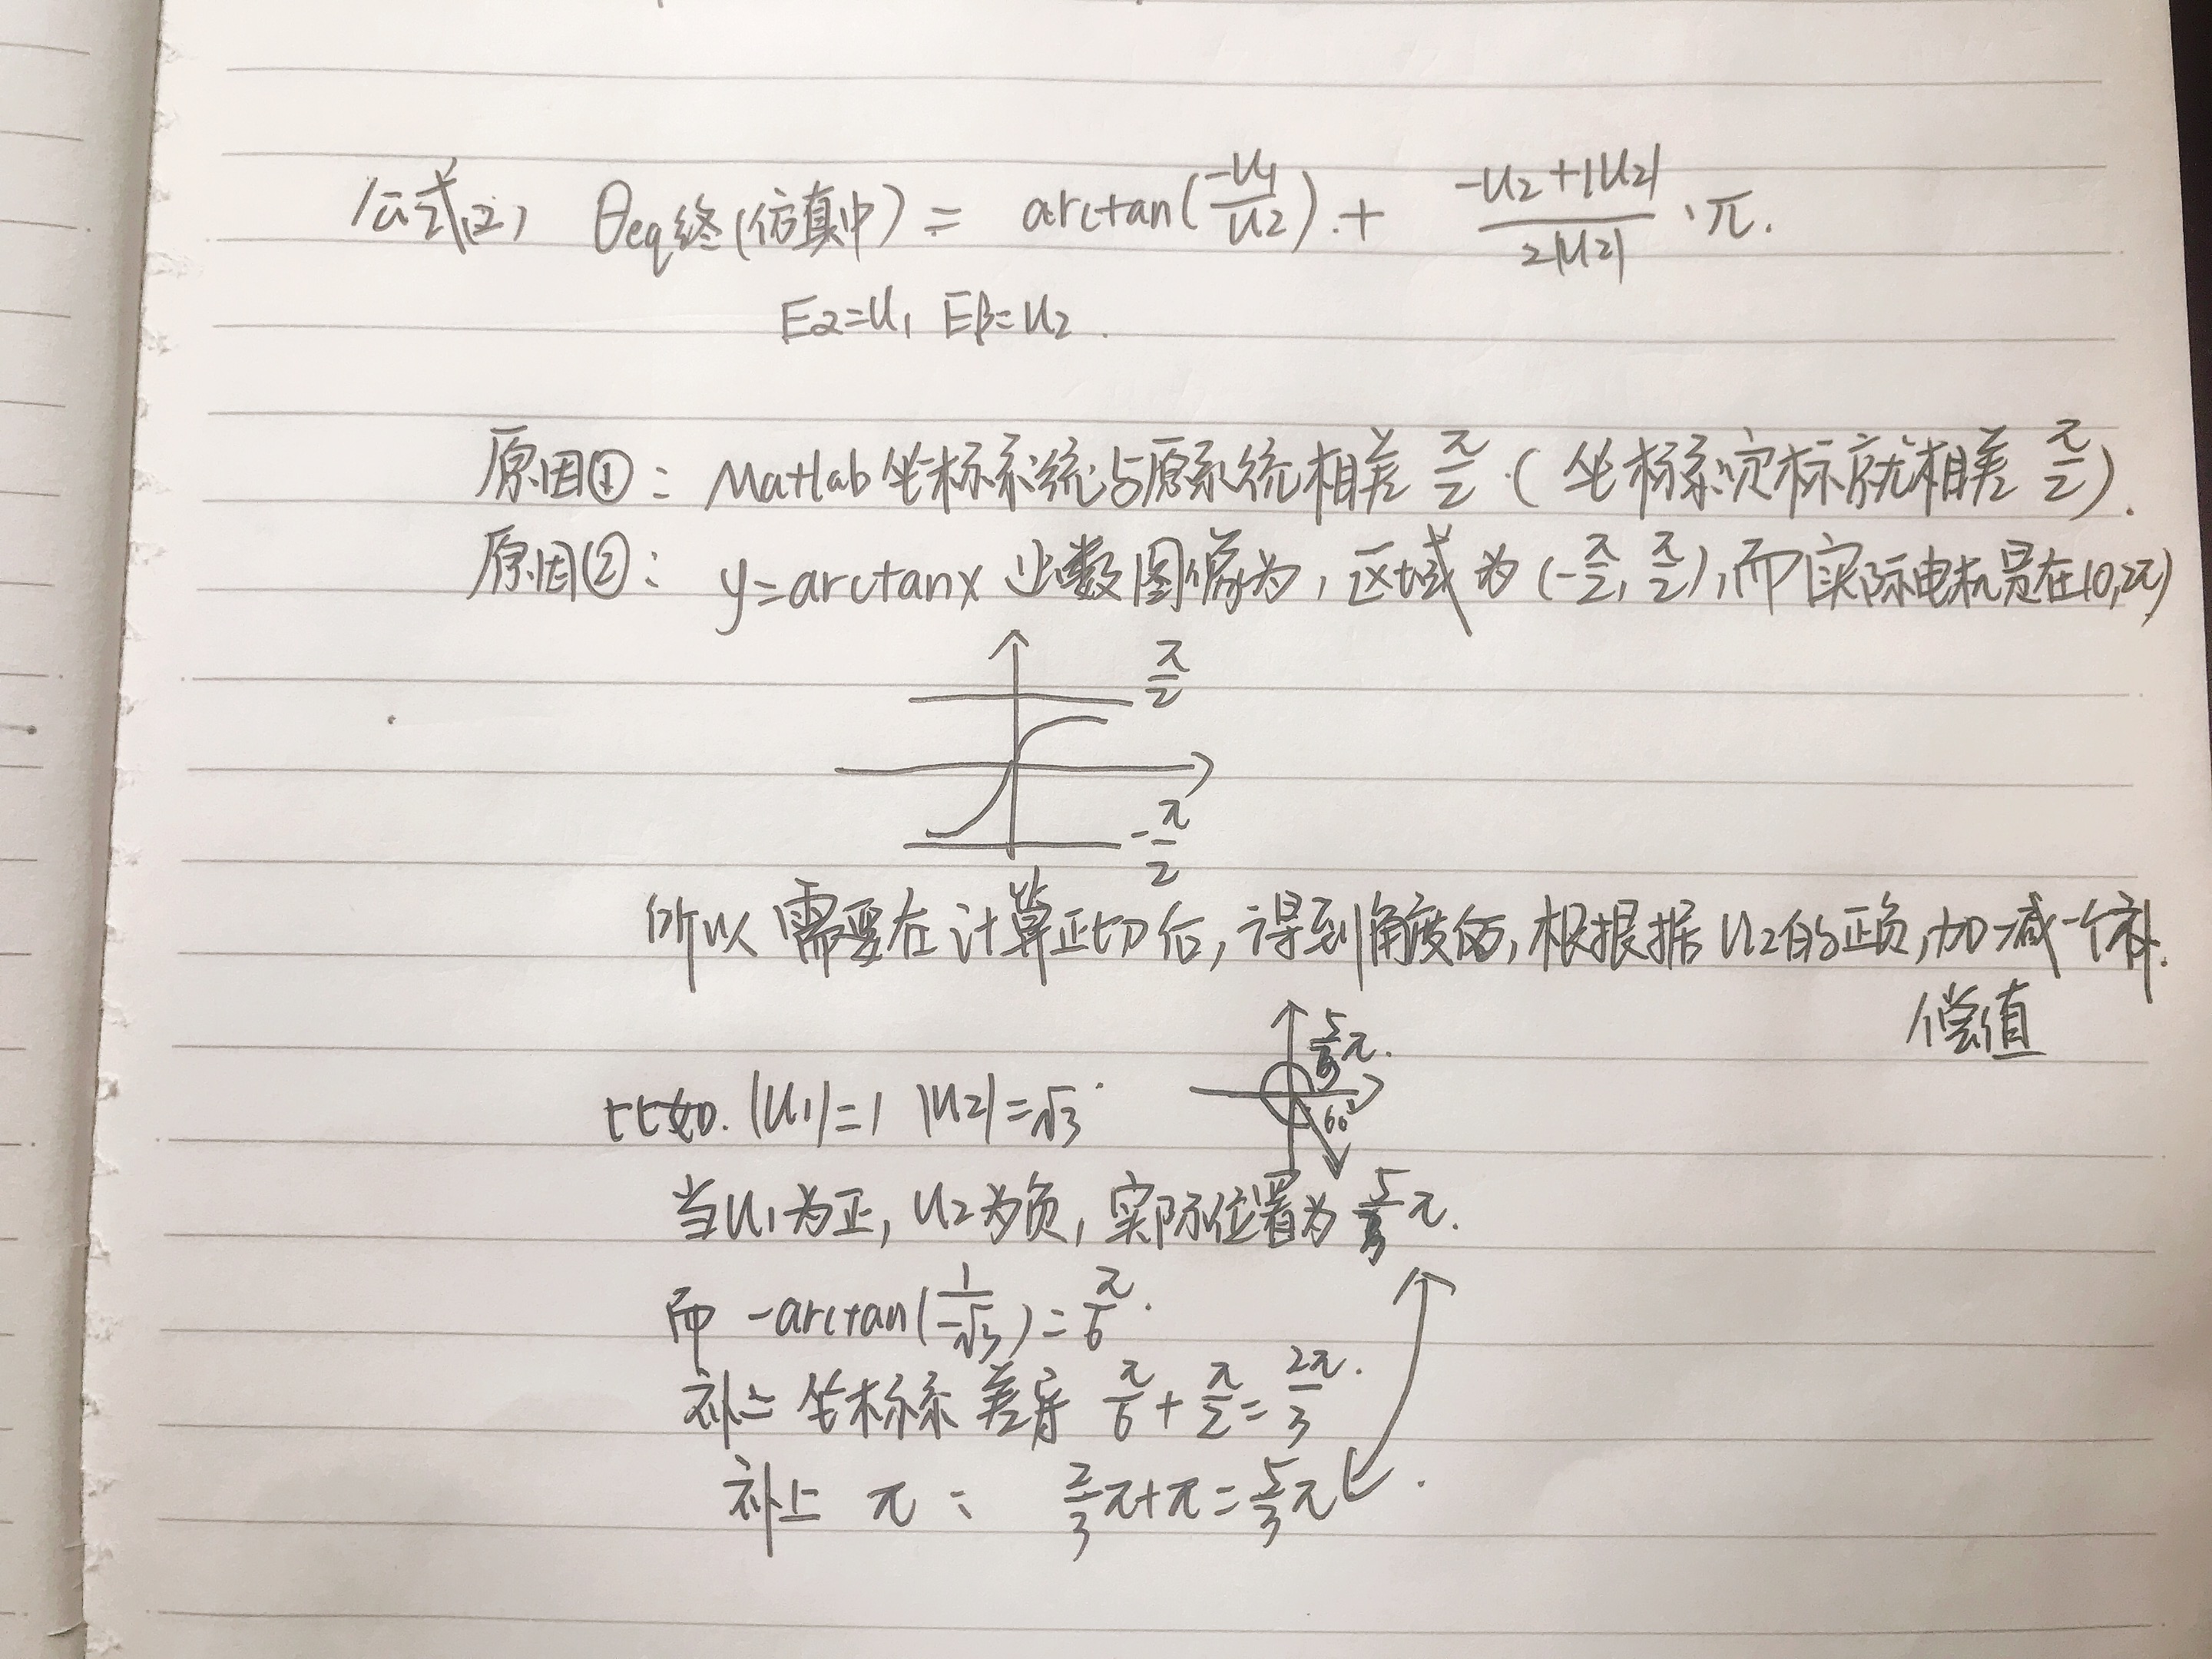 公式(2) θeq终(仿真中) = arctan(-u1/u2) + (-u2+|u2|)/(2|u2|)·π.
Eα=u1 Eβ=u2.
原因①: Matlab坐标系统与原系统相差 π/2 (坐标系定标就相差 π/2).
原因②: y=arctanx 函数图像为, 区域为 (-π/2, π/2), 而实际电机是在(0,2π)
π/2
-π/2
所以需要在计算正切后, 得到角度后, 根据 u2的正负, 加减一个补
偿值
5/3π.
60°
比如. |u1|=1 |u2|=√3
当u1为正, u2为负, 实际位置为 5/3π.
而 -arctan(1/-√3)=π/6.
补上坐标系差异 π/6+π/2=2π/3.
补上 π: 2/3π+π=5/3π.